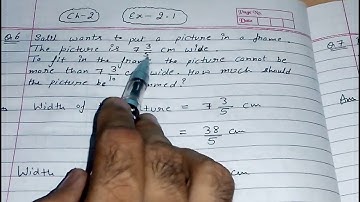 Ch-2 Ex-2.1
Page No.
Date
Q.6 Salil wants to put a picture in a frame.
The picture is 7 3/5 cm wide.
To fit in the frame the picture cannot be
more than 7 3/10 cm wide. How much should
the picture be trimmed?
Q.7
Width of picture = 7 3/5 cm
= 38/5 cm
Width